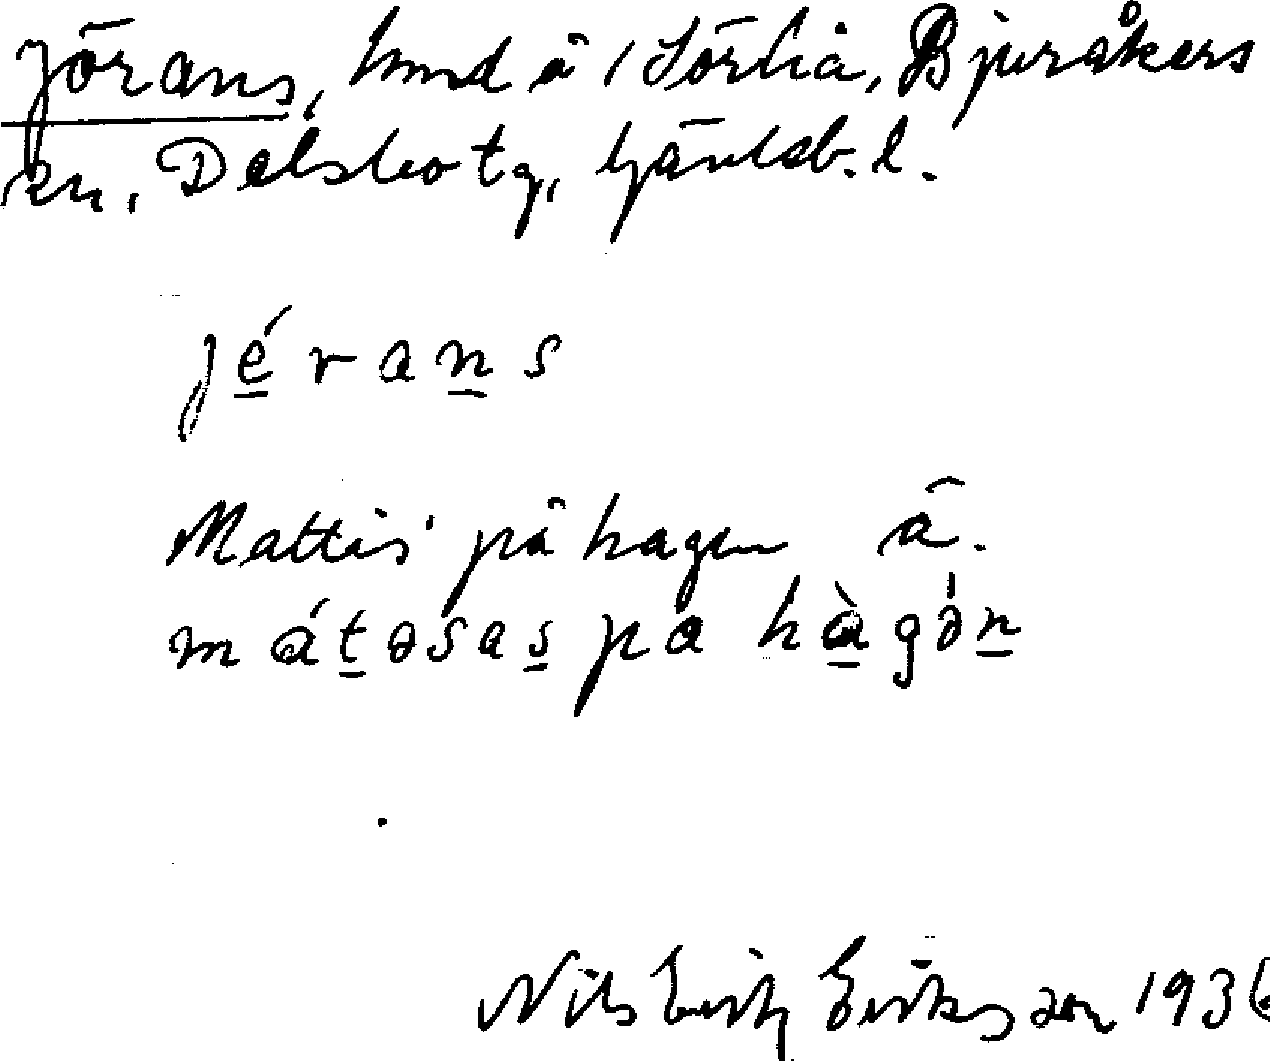 Jörans, hmd å 1 Sörlia, Bjuråkers
sn, Delsbo tg, Gävleb. l.
jérans
Mattis' på hagen ä.
mátəsas pa hàgòn
Nils Erik Eriksson 1936